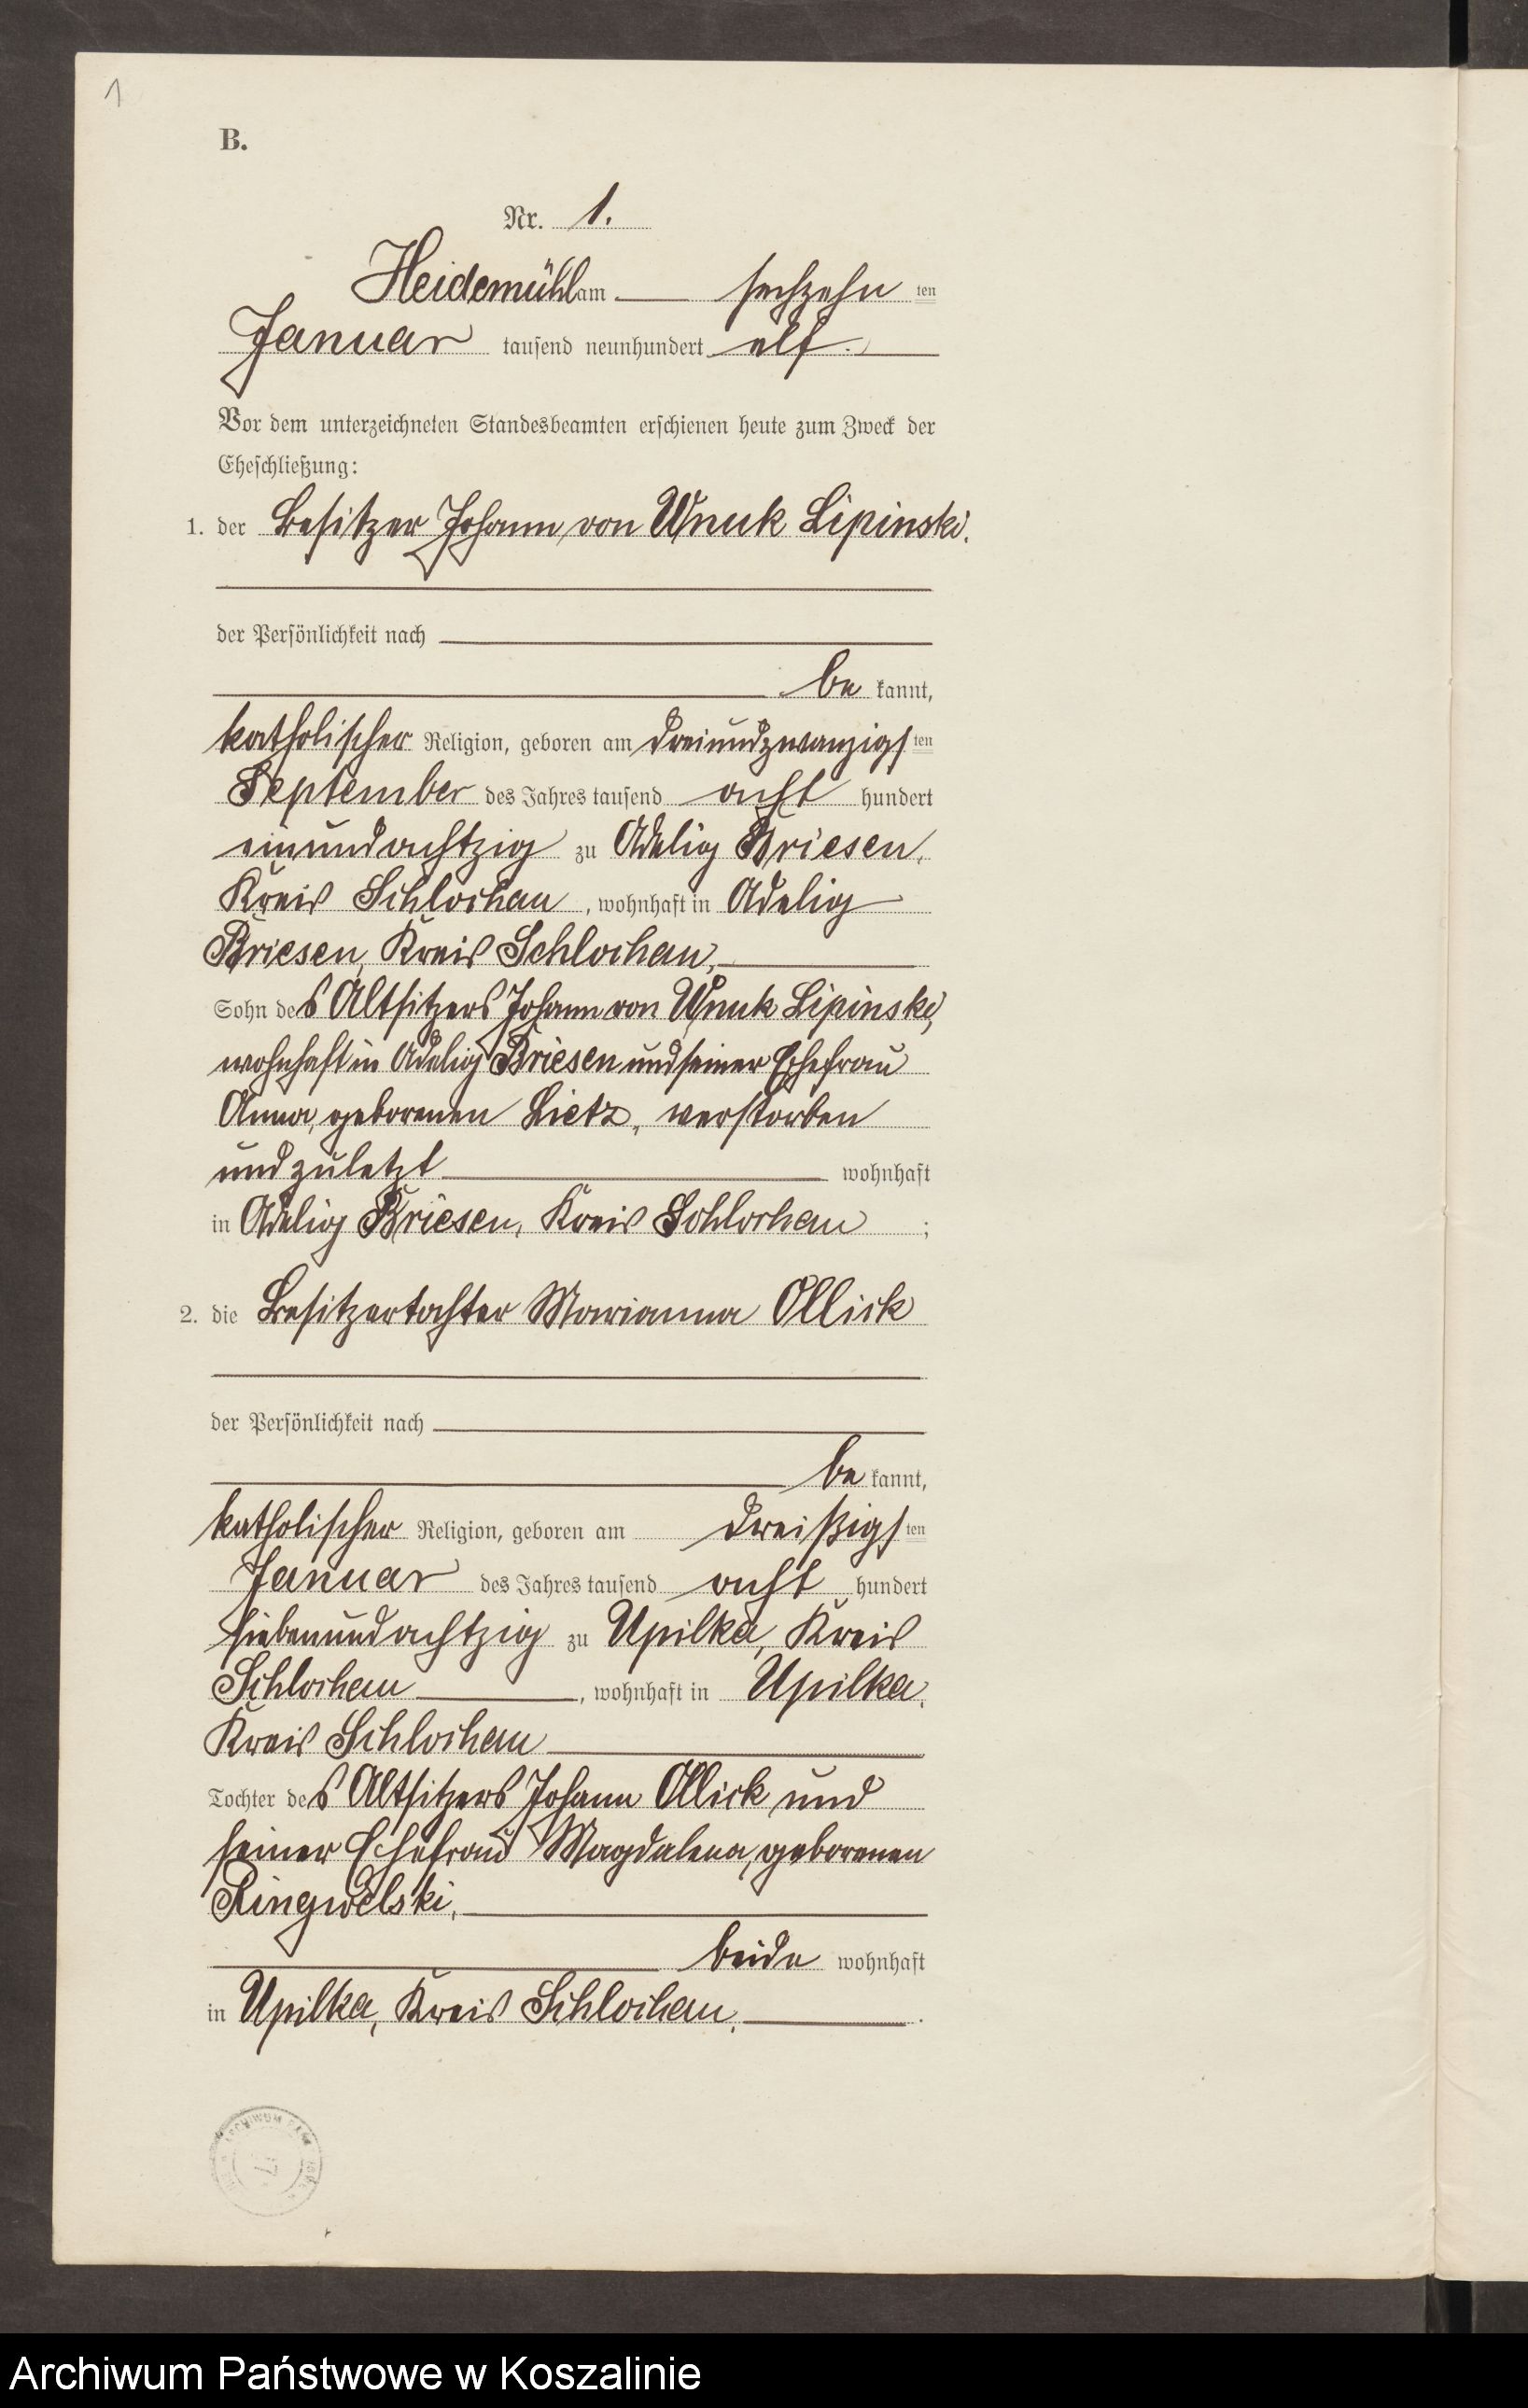 1
B.
Nr. 1.
Heidemühl am sechzehn ten
Januar tausend neunhundert elf.
Vor dem unterzeichneten Standesbeamten erschienen heute zum Zweck der
Eheschließung:
1. der Besitzer Johann von Wnuk Lipinski.
der Persönlichkeit nach
be kannt,
katholischer Religion, geboren am dreiundzwanzigs ten
September des Jahres tausend acht hundert
einundachtzig zu Adelig Briesen,
Kreis Schlochau, wohnhaft in Adelig
Briesen, Kreis Schlochau,
Sohn des Altsitzers Johann von Wnuk Lipinski,
wohnhaft in Adelig Briesen und seiner Ehefrau
Anna, geborenen Lietz, verstorben
und zuletzt wohnhaft
in Adelig Briesen, Kreis Schlochau;
2. die Besitzertochter Marianna Ollick
der Persönlichkeit nach
be kannt,
katholischer Religion, geboren am dreißigs ten
Januar des Jahres tausend acht hundert
siebenundachtzig zu Upilka, Kreis
Schlochau, wohnhaft in Upilka,
Kreis Schlochau
Tochter des Altsitzers Johann Ollick und
seiner Ehefrau Magdalena, geborenen
Ringwelski,
beide wohnhaft
in Upilka, Kreis Schlochau.
ARCHIWUM
Archiwum Państwowe w Koszalinie